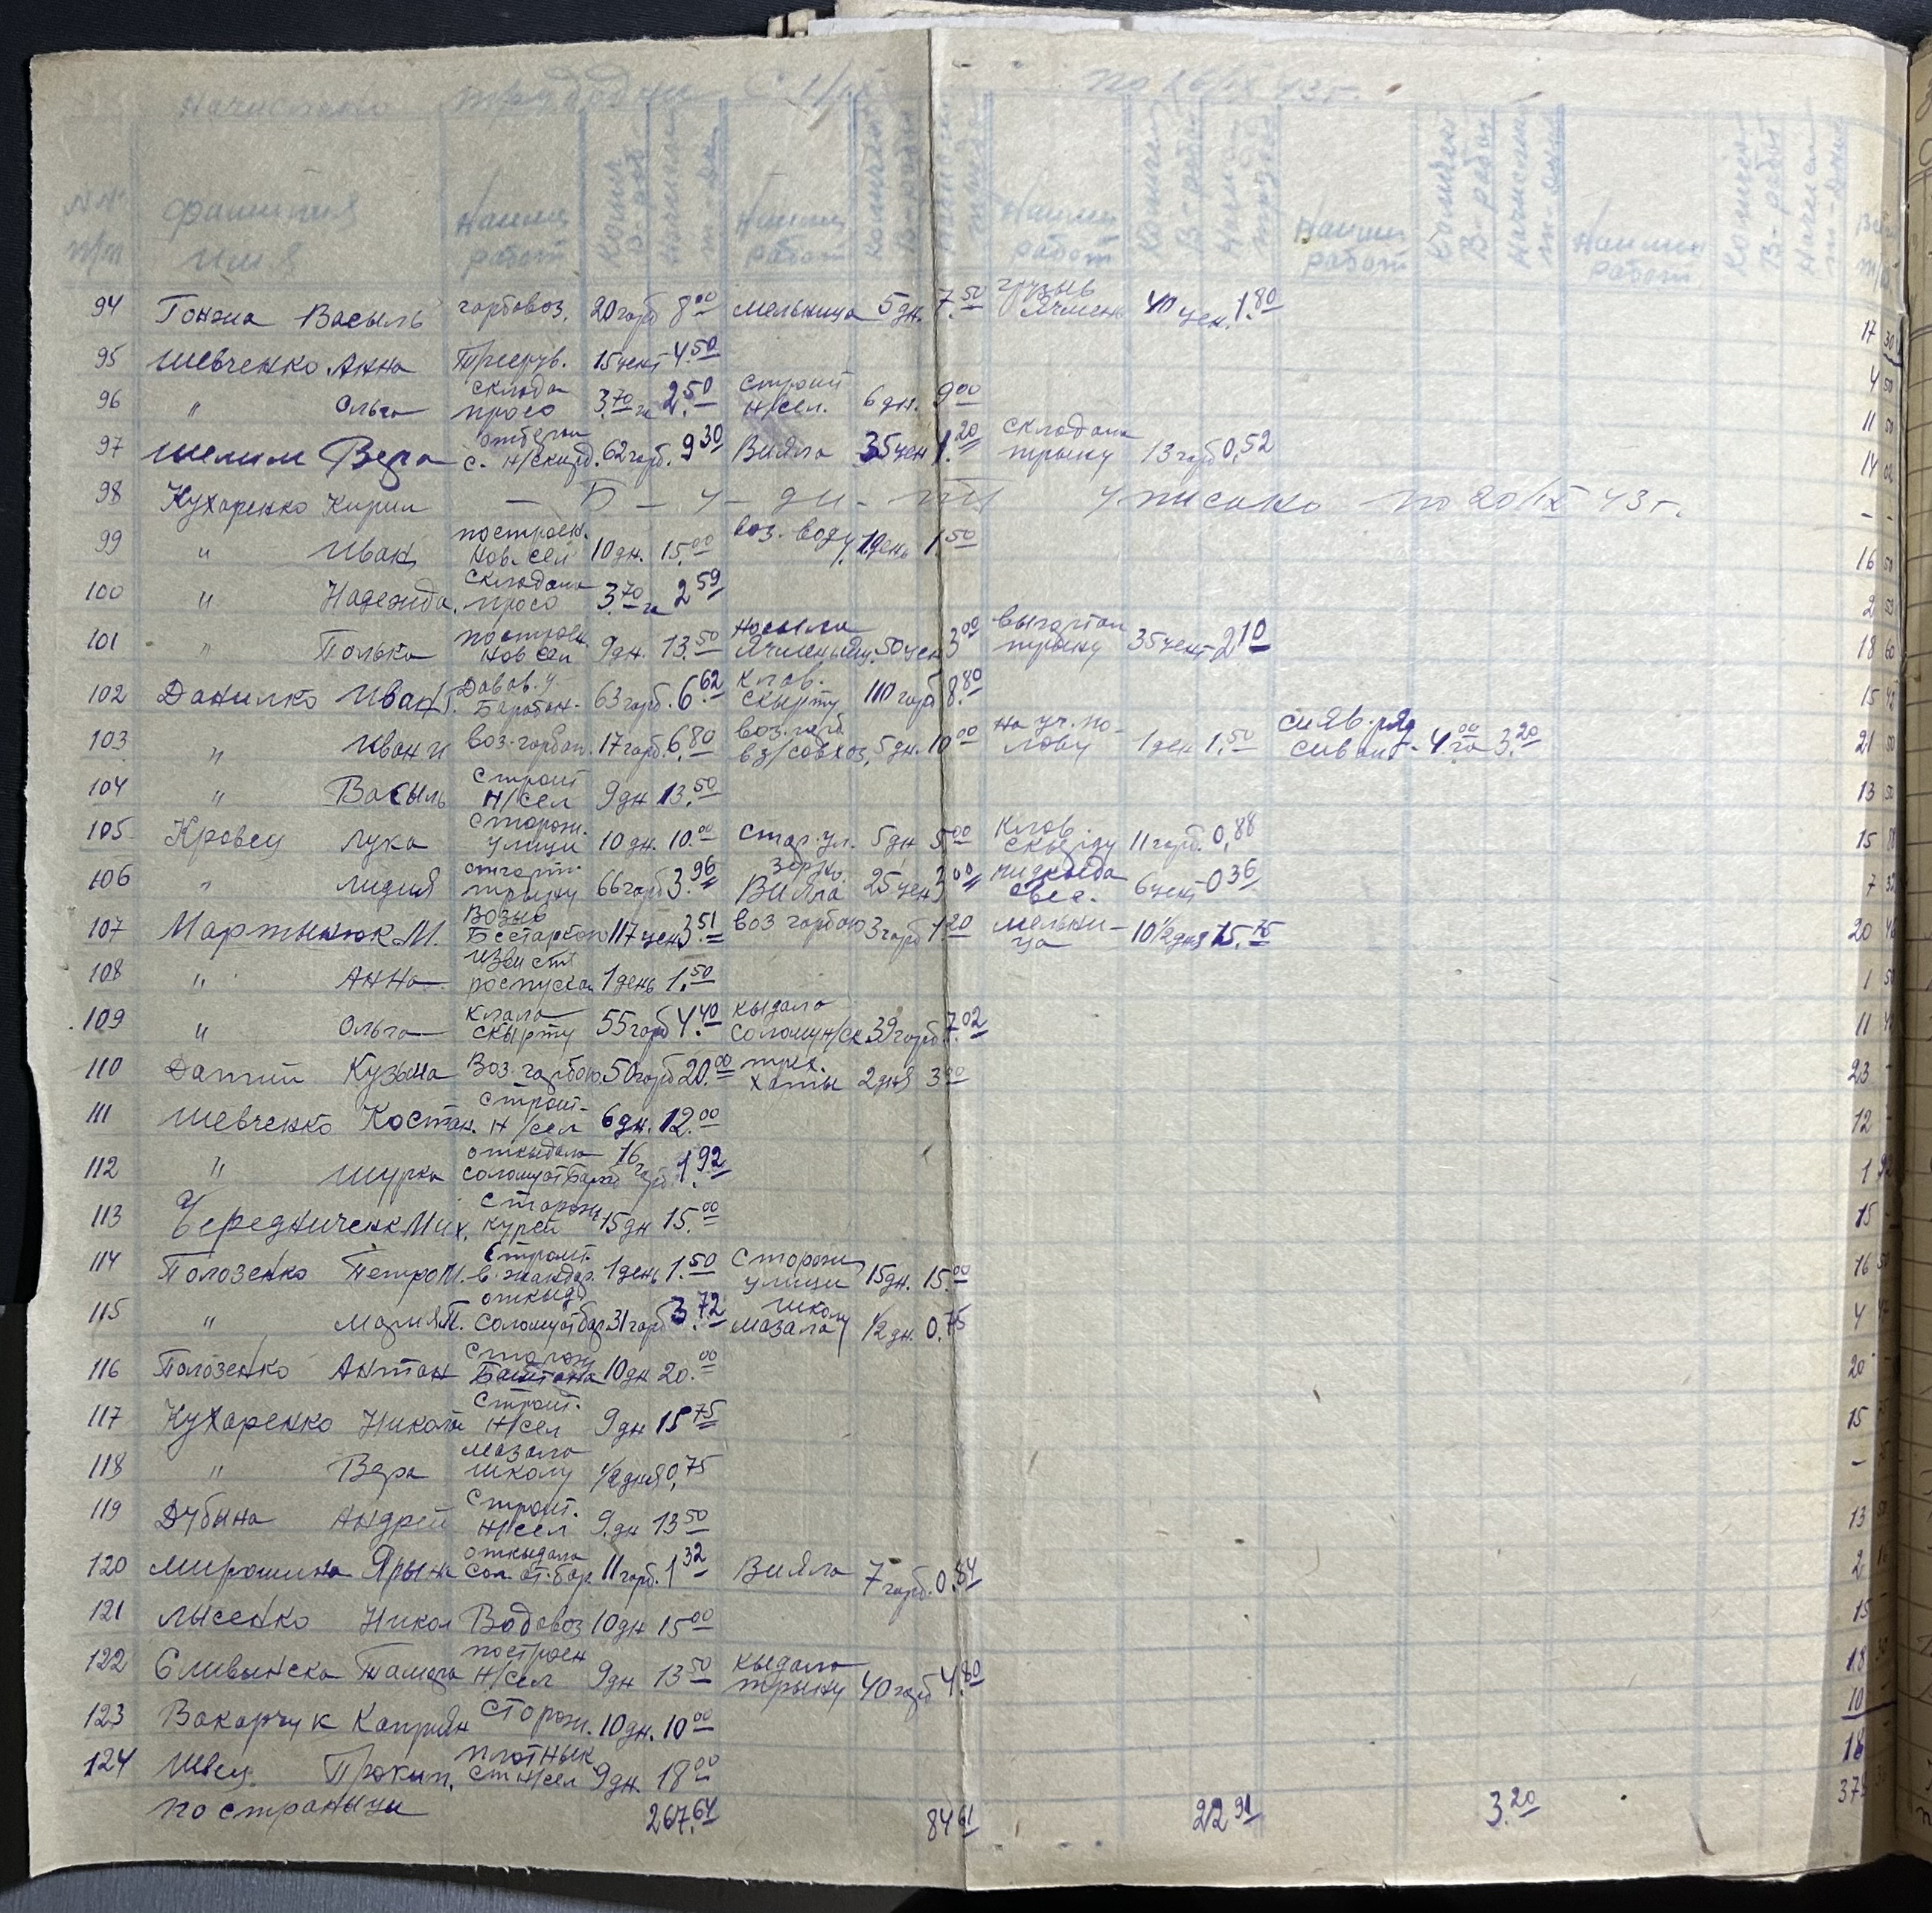 Начислено трудодни с 1/IX по 16/IX 43 г.
№№ п/п фамилия имя Наимен работ Колич В-раб Начислен т-дн Наимен работ Количест В-рабо Наимен работ Количес В-рабо Наимен работ Количес В-рабо Начислен т-дней Наимен работ Количес В-рабо Начислен т-дней
94 Гонжа Васыль гарбовоз. 20 гарб 8.00 мельница 5 дн. 7.50 Ячмень 40 цен. 1.80 17 30
95 Шевченко Анна 15 цент 4.50 4 50
96 " Ольга склада просо 3.70 га 2.50 строит н/сел. 6 дн. 9.00 11 50
97 Шелим Вера с. н/скирд. 62 гарб. 9.30 Вияла 35 цен 4.20 складала трыну 13 гарб 0,52 14 02
98 Кухаренко Кирил уписано по 20/IX 43 г. - -
99 " Иван построен. Нов. сел 10 дн. 15.00 воз. воду 1 день 1.50 16 50
100 " Надежда. складала просо 3.70 га 2.59 2 59
101 " Полька построен. Нов сел 9 дн. 13.50 Носила 50 цен 3.00 выгортал трыну 35 цент 2.10 18 60
102 Данилко Иван Г. Давав. у Барабан. 63 гарб. 6.62 Клав. скырту 110 гарб 8.80 15 42
103 " Иван И воз. гарбою. 17 гарб. 6.80 воз. гарб. вз/совхоз, 5 дн. 10.00 на уч. по-лову 1 ден 1.50 сияв. ряд сивал. 4.00 га 3.20 21 50
104 " Васыль строит н/сел 9 дн 13.50 13 50
105 Кравец Лука сторож. улици 10 дн. 10.00 стор. ул. 5 дн 5.00 клав скырту 11 гарб. 0,88 15 88
106 " Лидия отгорт. трыну 66 гарб 3.96 зерно. Вияла 25 цен 3.00 6 цент 0 36 7 32
107 Мартынюк М. возыв 117 цен 3.51 воз гарбою 3 гарб 1.20 мельни-ца 10 1/2 дня 15.75 20 46
108 " Анна роспускал 1 день 1.50 1 50
109 " Ольга клала скырту 55 гарб 4.40 кыдала солому н/ск 39 гарб. 7.02 11 42
110 Датий Кузьма Воз. гарбою. 50 гарб 20.00 хаты 2 дня 3.00 23 -
111 Шевченко Костян. строит. н/сел 6 дн. 12.00 12 -
112 " Шурка откыдала солому от бараб 16 гарб 1.92 1 92
113 Чередниченк Мих. Сторож курей 15 дн 15.00 15 -
114 Полозенко Петро М. строит. в. жандар. 1 день 1.50 Сторож улици 15 дн. 15.00 16 50
115 " Мария П. откыд. солому от бар. 31 гарб 3.72 школу мазала 1/2 дн. 0.75 4 47
116 Полозенко Антон Сторож Баштана 10 дн 20.00 20 -
117 Кухаренко Никола Строит. Н/сел 9 дн 15 75 15
118 " Вера мазала школу 1/2 дня 0,75 -
119 Дубына Андрей строит. н/сел 9 дн 13 50 13
120 Мирошина Ярына откыдала сол. от. бар. 11 гарб. 1.32 Вияла 7 гарб. 0.84 2
121 Лысенко Никол Водовоз 10 дн 15 00 15
122 Сливынска Тамара построен н/сел 9 дн 13 50 кыдала трыну 40 гарб 4.80 18
123 Вакарчук Каприян Сторож. 10 дн. 10 00 10
124 Швец Прокип. плотнык ст н/сел 9 дн. 18 00 18
по страныци 267.64 84 61 22 91 3.20 37